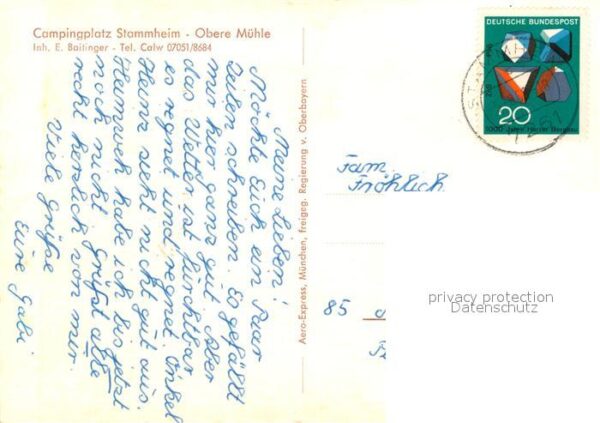 Campingplatz Stammheim - Obere Mühle
Inh. E. Baitinger - Tel. Calw 07051/8684
Meine Lieben!
Möchte Euch ein Paar
Zeilen schreiben. Es gefällt
mir hier ganz gut. Aber
das Wetter ist furchtbar
es regnet und regnet. Onkel
Heinz sieht nicht gut aus.
Heimweh habe ich bis jetzt
noch nicht. Grüßt alle
recht herzlich von mir.
Viele Grüße
Eure Gabi
Aero-Express, München, freigeg. Regierung v. Oberbayern
DEUTSCHE BUNDESPOST
20
1000 Jahre Harzer Bergbau
Fam.
Fröhlich
85
privacy protection
Datenschutz